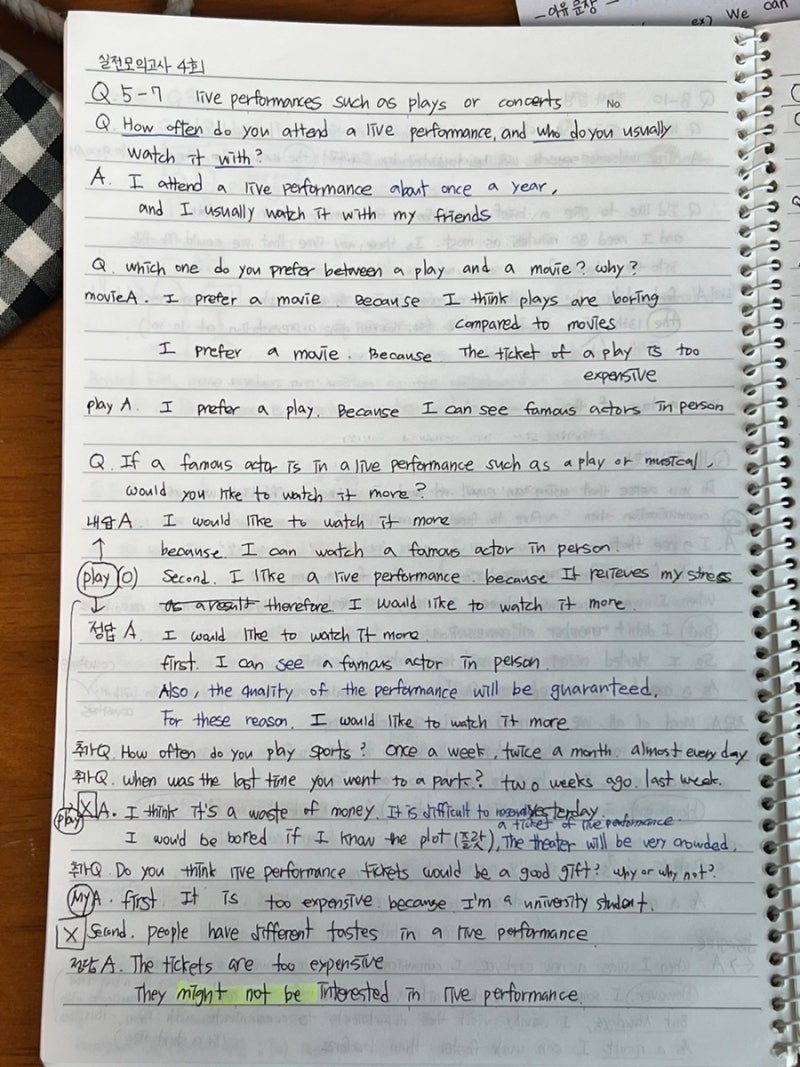 - 이유 문장 -
ex) We can
실전모의고사 4회
Q 5-7 live performances such as plays or concerts No
Q. How often do you attend a live performance, and who do you usually
watch it with?
A. I attend a live performance about once a year,
and I usually watch it with my friends
Q. which one do you prefer between a play and a movie? why?
movie A. I prefer a movie. Because I think plays are boring
compared to movies
I prefer a movie. Because The ticket of a play is too
expensive
play A. I prefer a play. Because I can see famous actors in person
Q. If a famous actor is in a live performance such as a play or musical,
would you like to watch it more?
내답 A. I would like to watch it more
because. I can watch a famous actor in person.
play (O) Second. I like a live performance. because It relieves my stress
as a result therefore I would like to watch it more.
정답 A. I would like to watch it more.
first. I can see a famous actor in person
Also, the quality of the performance will be guaranteed.
For these reason, I would like to watch it more
추가Q. How often do you play sports? once a week, twice a month. almost every day
추가Q. when was the last time you went to a park? two weeks ago. last week.
yesterday
play X A. I think it's a waste of money. It is difficult to
a ticket of live performance.
I would be bored if I know the plot (플랏), The theater will be very crowded.
추가Q. Do you think live performance tickets would be a good gift? why or why not?
My A. first. It is too expensive because I'm a university student.
X Second. people have different tastes in a live performance
정답 A. The tickets are too expensive
They might not be interested in live performance.